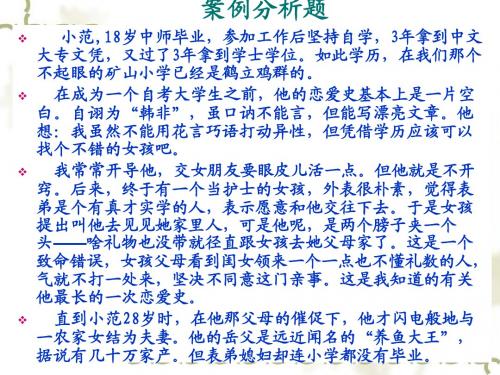 案例分析题
小范,18岁中师毕业，参加工作后坚持自学，3年拿到中文
大专文凭，又过了3年拿到学士学位。如此学历，在我们那个
不起眼的矿山小学已经是鹤立鸡群的。
在成为一个自考大学生之前，他的恋爱史基本上是一片空
白。自诩为“韩非”，虽口讷不能言，但能写漂亮文章。他
想：我虽然不能用花言巧语打动异性，但凭借学历应该可以
找个不错的女孩吧。
我常常开导他，交女朋友要眼皮儿活一点。但他就是不开
窍。后来，终于有一个当护士的女孩，外表很朴素，觉得表
弟是个有真才实学的人，表示愿意和他交往下去。于是女孩
提出叫他去见见她家里人，可是他呢，是两个膀子夹一个
头——啥礼物也没带就径直跟女孩去她父母家了。这是一个
致命错误，女孩父母看到闺女领来一个一点也不懂礼数的人，
气就不打一处来，坚决不同意这门亲事。这是我知道的有关
他最长的一次恋爱史。
直到小范28岁时，在他那父母的催促下，他才闪电般地与
一农家女结为夫妻。他的岳父是远近闻名的“养鱼大王”，
据说有几十万家产。但表弟媳妇却连小学都没有毕业。